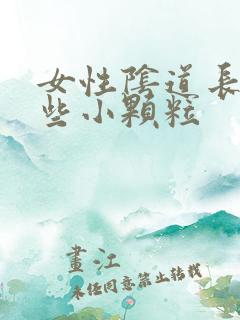 女性陰道長
些小顆粒
畫江
未經同意禁止轉載